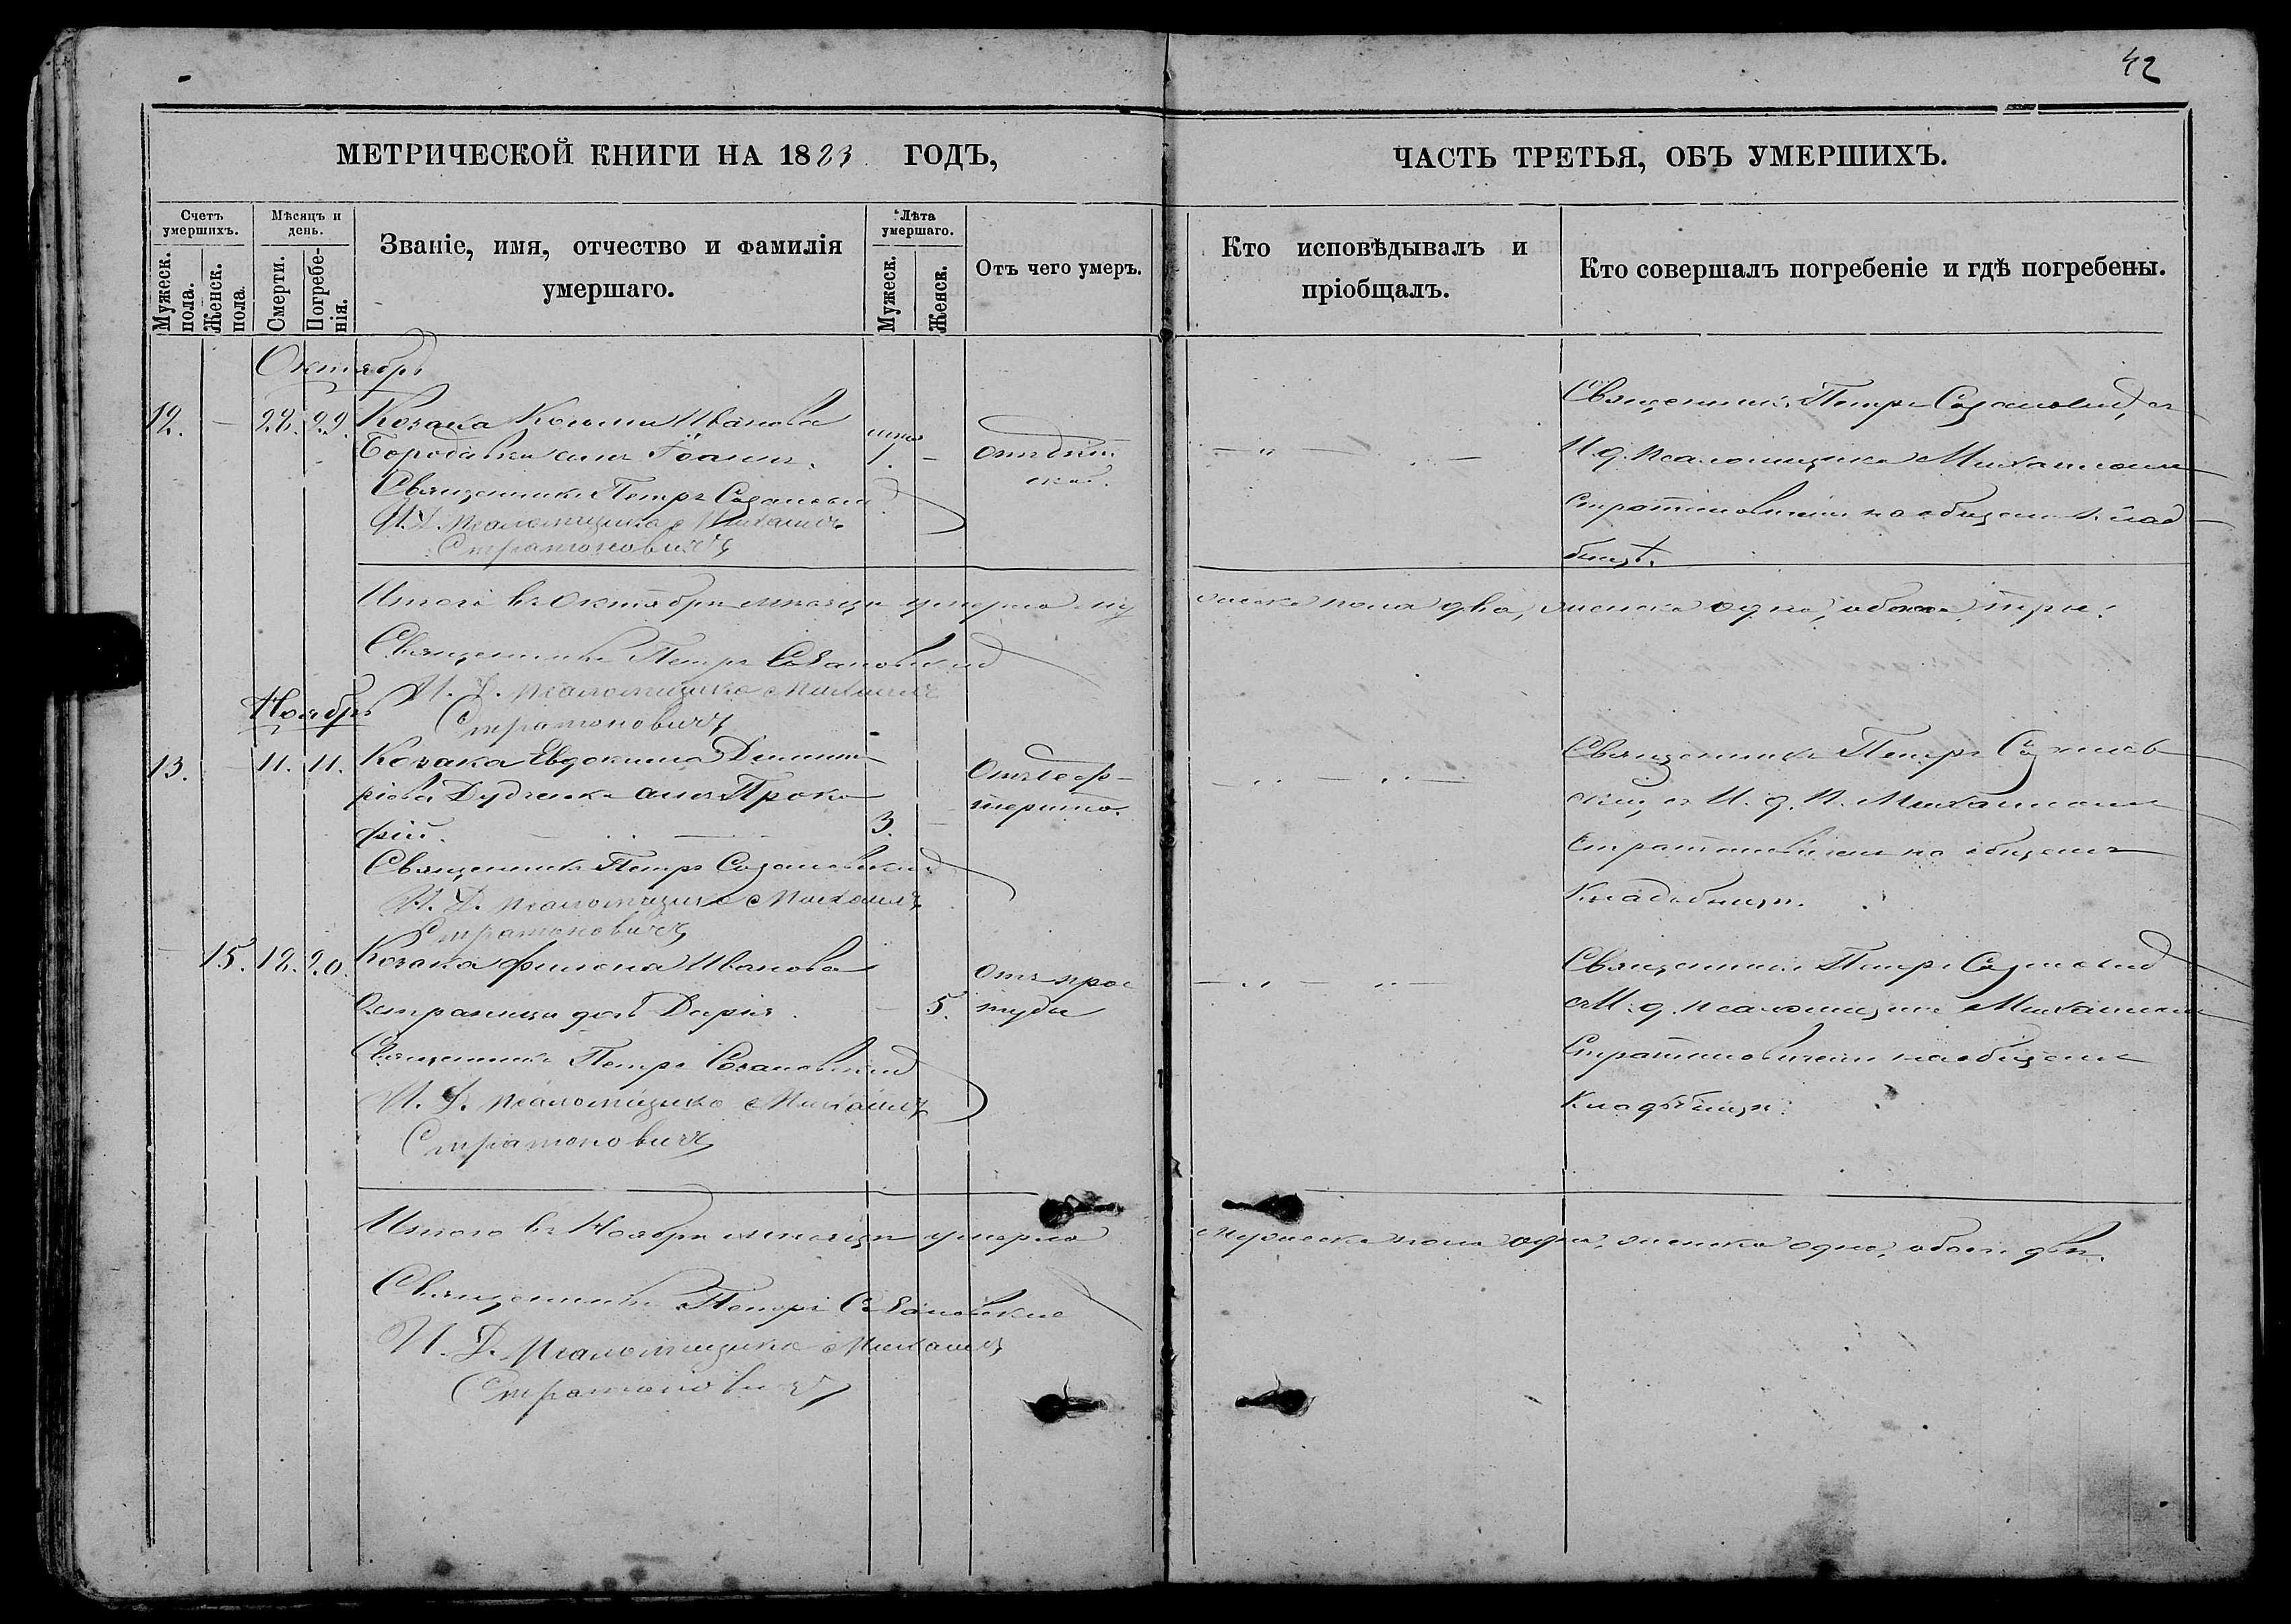 42
МЕТРИЧЕСКОЙ КНИГИ НА 1883 ГОДЪ,
ЧАСТЬ ТРЕТЬЯ, ОБЪ УМЕРШИХЪ.
Счетъ умершихъ.
Мужеск. пола.
Женск. пола
Мѣсяцъ и день.
Смерти.
Погребенія.
Званіе, имя, отчество и фамилія умершаго.
Лѣта умершаго.
Мужеск.
Женск.
Отъ чего умеръ.
Кто исповѣдывалъ и пріобщалъ.
Кто совершалъ погребеніе и гдѣ погребены.
Октябрь
12. — 28. 29. Козака Козьмы Иванова
Бородавки сынъ Іоаннъ. 1. —
Священникъ Петръ Сазановскій
И. Д. псаломщика Михаилъ
Стратоновичъ
Священникъ Петръ Сазановскій съ
И. д. псаломщика Михаиломъ
Стратоновичемъ на общем клад
бищѣ.
Итого въ Октябрѣ мѣсяцѣ умерло му
жеска пола два, женска одна, обоего три.
Священникъ Петръ Сазановскій
И. Д. псаломщика Михаилъ
Стратоновичъ
Ноябрь
13. — 11. 11. Козака Евдокима Димит
ріева Дудченка сынъ Проко
фій. 3. —
Отъ деф
терита.
Священникъ Петръ Сазановскій
И. Д. псаломщика Михаилъ
Стратоновичъ
Священникъ Петръ Сазанов
скій, съ И. д. П. Михаиломъ
Стратоновичемъ на общемъ
Кладбищѣ.
— 15. 18. 20. Козака Филона Иванова
дочь Дарія. — 5.
Отъ прос
туды
Священникъ Петръ Сазановскій
И. Д. псаломщика Михаилъ
Стратоновичъ
Священникъ Петръ Сазановскій
съ И. д. псаломщика Михаиломъ
Стратоновичемъ на общемъ
Кладбищѣ.
Итого въ Ноябрѣ мѣсяцѣ умерло
мужеска пола одинъ, женска одна, обоего два.
Священникъ Петръ Сазановскій
И. Д. псаломщика Михаилъ
Стратоновичъ